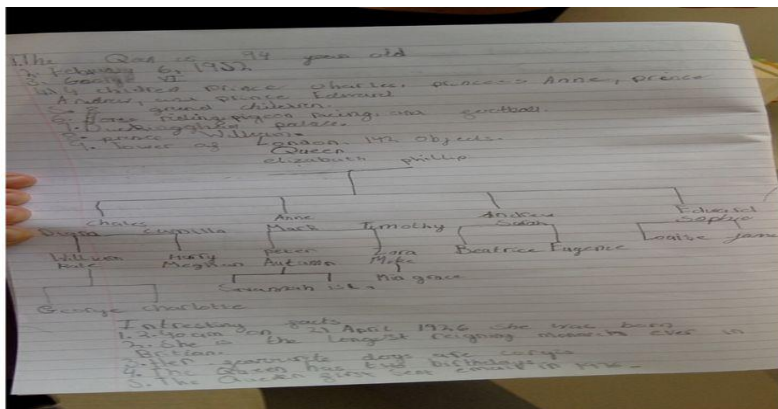 1. The Queen is 94 years old
2. February 6, 1952
3. George VI
4. 4 children prince charles, princess Anne, prince
Andrew, and prince Edward
5. 8 grand children.
6. Horse riding, pigeon racing, and football.
7. Buckingham palace.
8. prince William.
9. Tower of London. 142 objects.
Queen
elizabeth phillip
Chales Anne Andrew Edward
Diana Camilla Mark Timothy Sarah Sophie
William Harry Peter Zara Beatrice Eugenie Louise James
Kate Meghan Autumn Mike
Savannah isla Mia grace
George charlotte
Intresting facts
1. on 21 April 1926 she was born
2. She is the longest reigning monarch ever in
Britian.
3. Her favourite dogs are corgis
4. The Queen has two birthdays
5. The Queen first sent email in 1976